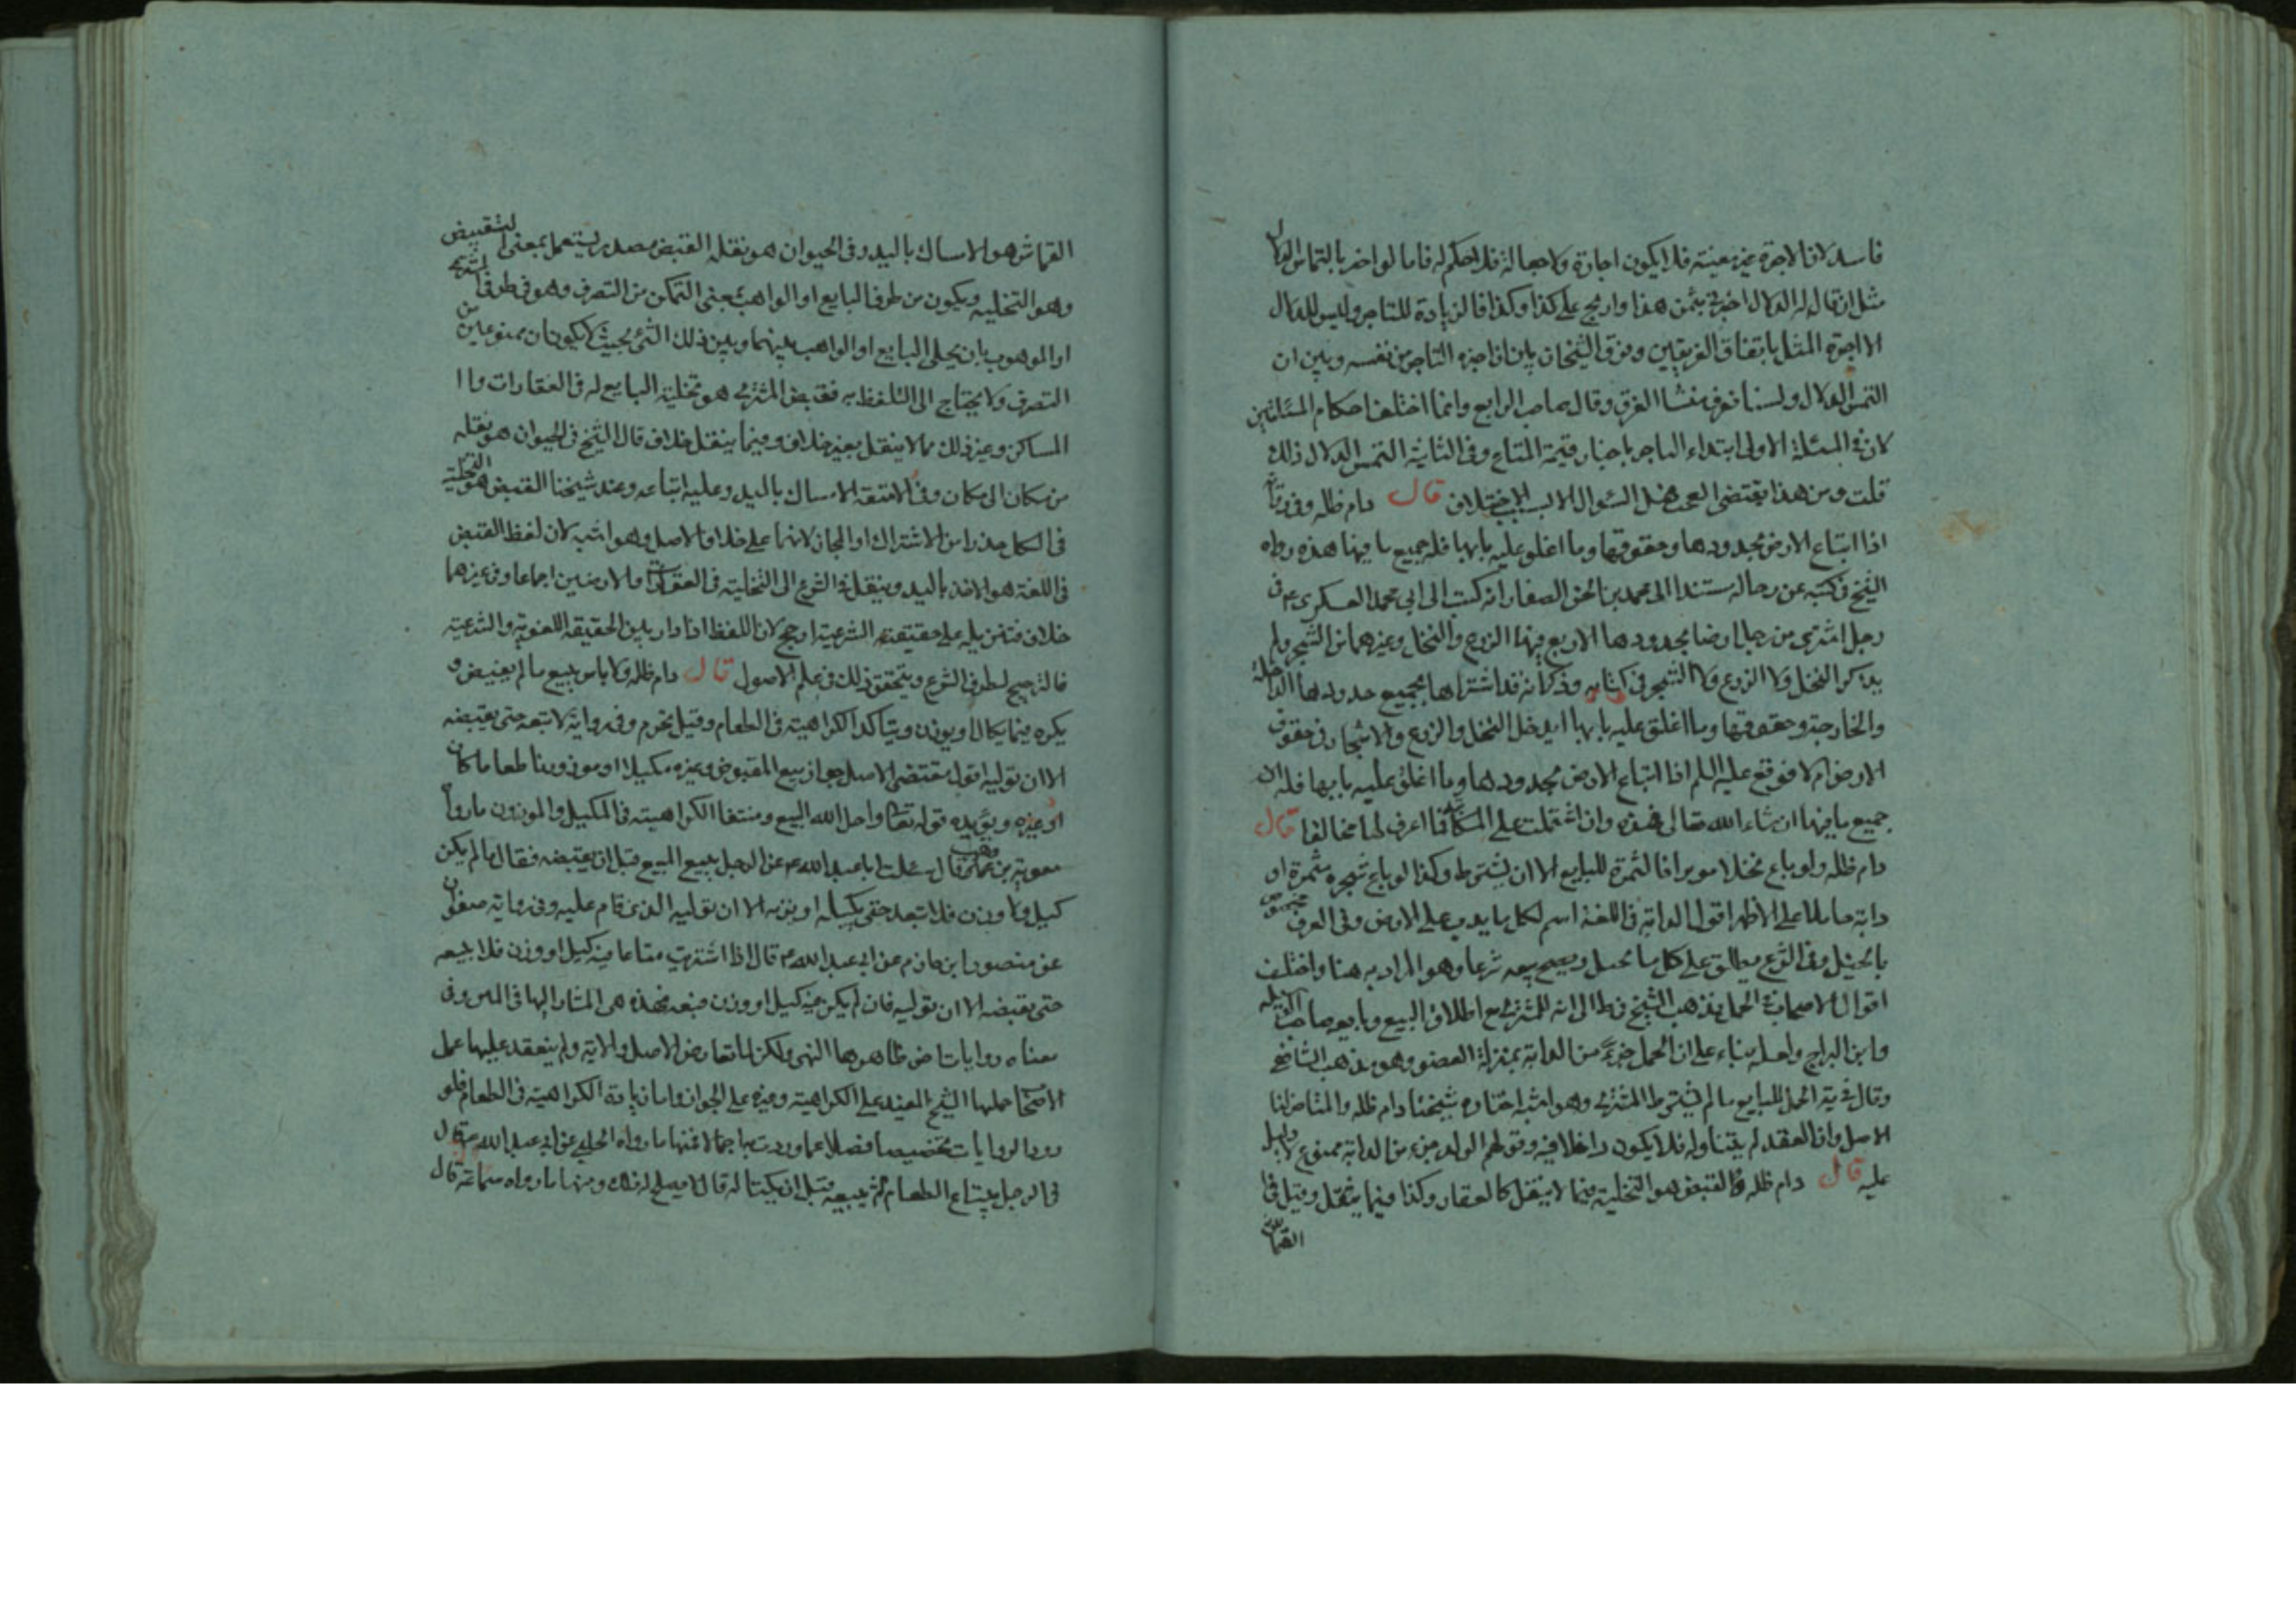 فاسد لان الاجرة غير معينة فلا يكون اجارة ولا جعالة فلا حكم له فاما لو اخبر بالتماس الدلال
مثل ان قال له الدلال اخبرني بثمن هذا واربح على كذا وكذا فالزيادة للتاجر وليس للدلال
الا اجرة المثل باتفاق الفريقين وفرق الشيخان بان اذا اجزه التاجر من نفسه وبين ان
التمس الدلال ولسنا نعرف منشا الفرق وقال صاحب الرابع وانما اختلف احكام المسئلتين
لان في المسئلة الاولى ابتداء التاجر باخبار قيمة المتاع وفي الثانية التمس الدلال ذلك
قلت ومن هذا يقتضى العجب هل السئوال الا لسبب الاختلاف قال دام ظله وفي رواية
اذا ابتاع الارض بحدودها وحقوقها وما اغلق عليه بابها فله جميع ما فيها هذه رواه
الشيخ في كتبه عن رجاله مستندا الى محمد بن الحسن الصفار انه كتب الى ابي محمد العسكرى ع في
رجل اشترى من رجل ارضا بحدودها الاربع فيها الزرع والنخل وغيرهما من الشجر ولم
يذكر النخل ولا الزرع ولا الشجر في كتابه وذكر انه قد اشتراها بجميع حدودها الداخلة
والخارجة وحقوقها وما اغلق عليه بابها ايدخل النخل والزرع والاشجار في حقوق
الارض ام لا فوقع عليه السلم اذا ابتاع الارض بحدودها وما اغلق عليه بابها فله ان
جميع ما فيها ان شاء الله تعالى فهذه وان اشتملت على المكاتبة فما اعرف لها مخالفا قال
دام ظله ولو باع نخلا موبرا فالثمرة للبايع الا ان يشترط وكذا لو باع شجرة مثمرة او
دابة حاملا على الاظهر اقول الدابة في اللغة اسم لكل ما يدب على الارض وفي العرف مختص
بالخيل وفي الشرع يطلق على كل ما يحمل ويصح بيعه شرعا وهو المراد به هنا واختلف
اقوال الاصحاب في الحمل فذهب الشيخ في ط الى انه للمشترى مع اطلاق البيع وتابعه صاحب الوسيلة
وابن البراج ولعله بناء على ان الحمل جزء من الدابة بمنزلة العضو وهو مذهب الشافعي
وقال في ية الحمل للبايع ما لم يشترط المشترى وهو اشبه اختاره شيخنا دام ظله والمتاخر لنا
الاصل وان العقد لم يتناوله فلا يكون داخلا فيه وقولهم الولد جزء من الدابة ممنوع لا دليل
عليه قال دام ظله القبض هو التخلية فيما لا ينقل كالعقار وكذا فيما ينتقل وقيل في
القماش
القماش هو الامساك باليد وفي الحيوان هو نقله القبض مصدر يستعمل بمعنى التقبيض
وهو التخلية ويكون من طرف البايع او الواهب بمعنى التمكن من التصرف وهو في طرف المشترى
او الموهوب بان يخلي البايع او الواهب بينهما وبين ذلك الشئ بحيث لا يكونان ممنوعين من
التصرف ولا يحتاج الى التلفظ به فقبض المشترى هو تخلية البايع له في العقارات وا
المساكن وغير ذلك مما لا ينقل بغير خلاف وفيما ينقل خلاف قال الشيخ في الحيوان هو نقله
من مكان الى مكان وفي الامتعة الامساك باليد وعليه اتباعه وعند شيخنا القبض هو التخلية
في الكل حذرا من الاشتراك او المجاز لانهما على خلاف الاصل وهو اشبه لان لفظ القبض
في اللغة هو الاخذ باليد وينقل في الشرع الى التخلية في العقارات والارضين اجماعا وفي غيرهما
خلاف فتنزيله على حقيقته الشرعية ارجح لان اللفظ اذا دار بين الحقيقة اللغوية والشرعية
فالترجيح لطرف الشرع ويتحقق ذلك في علم الاصول قال دام ظله ولا باس ببيع ما لم يقبض و
يكره فيما يكال او يوزن ويتاكد الكراهية في الطعام وقيل تحرم وفي رواية لا تبعه حتى يقبضه
الا ان توليه اقول مقتضى الاصل جواز بيع المقبوض وغيره مكيلا او موزونا طعاما كان
او غيره ويؤيده قوله تعالى واحل الله البيع ومنشا الكراهية في المكيل والموزون ما رواه
معوية بن وهب قال سئلت ابا عبد الله ع عن الرجل يبيع المبيع قبل ان يقبضه فقال ما لم يكن
كيل ولا وزن فلا تبعه حتى يكيله او يزنه الا ان توليه الذى قام عليه وفي رواية صفوان
عن منصور ابن حازم عن ابي عبد الله ع قال اذا اشتريت متاعا فيه كيل او وزن فلا تبعه
حتى تقبضه الا ان توليه فان لم يكن فيه كيل او وزن فبعه فهذه هى المشار اليها في المتن وفي
معناه روايات اخر ظاهرها النهى ولكن لما تعارض الاصل والاية ولم ينعقد عليها عمل
الاصحاب حملها الشيخ المفيد على الكراهية وغيره على الجواز واما زيادة الكراهية في الطعام فلو
رود الروايات تخصيصا فضلا عما وردت بها جمالا فمنها ما رواه الحلبى عن ابي عبد الله ع قال
في الرجل يبتاع الطعام ثم يبيعه قبل ان يكتاله قال لا يصلح له ذلك ومنها ما رواه سماعة قال